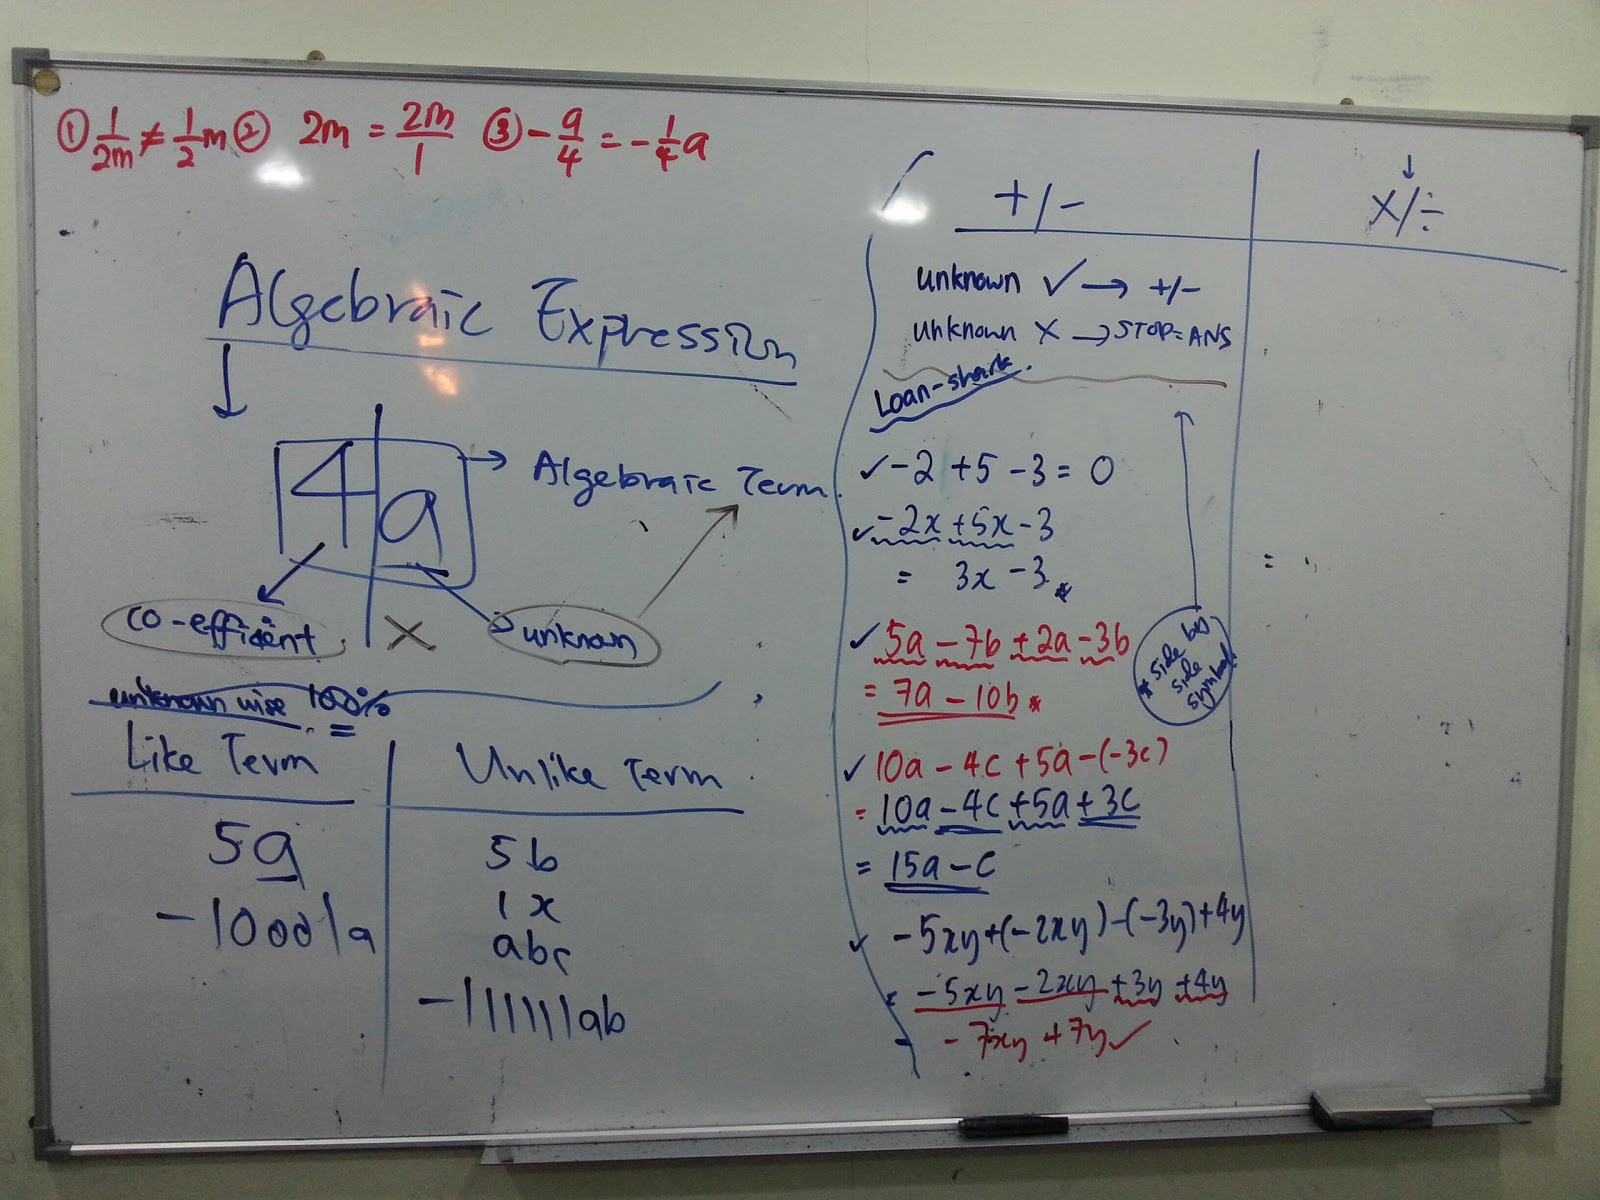 ① 1/2m ≠ 1/2 m ② 2m = 2m/1 ③ - a/4 = - 1/4 a
Algebraic Expression
↓
4a → Algebraic Term
co-efficient × unknown
unknown wise 100%
=
Like Term
5a
-10001a
Unlike Term
5b
1x
abc
-111111ab
+/-
unknown ✓ → +/-
unknown × → STOP = ANS
Loan-shark.
✓ -2 +5 -3 = 0
✓ -2x +5x -3
= 3x -3 *
✓ 5a -7b +2a -3b
= 7a - 10b *
* side by
side
symbol
✓ 10a - 4c + 5a - (-3c)
= 10a - 4c + 5a + 3c
= 15a - c
✓ -5xy + (-2xy) - (-3y) + 4y
= -5xy - 2xy + 3y + 4y
- -7xy + 7y ✓
↓
×/÷